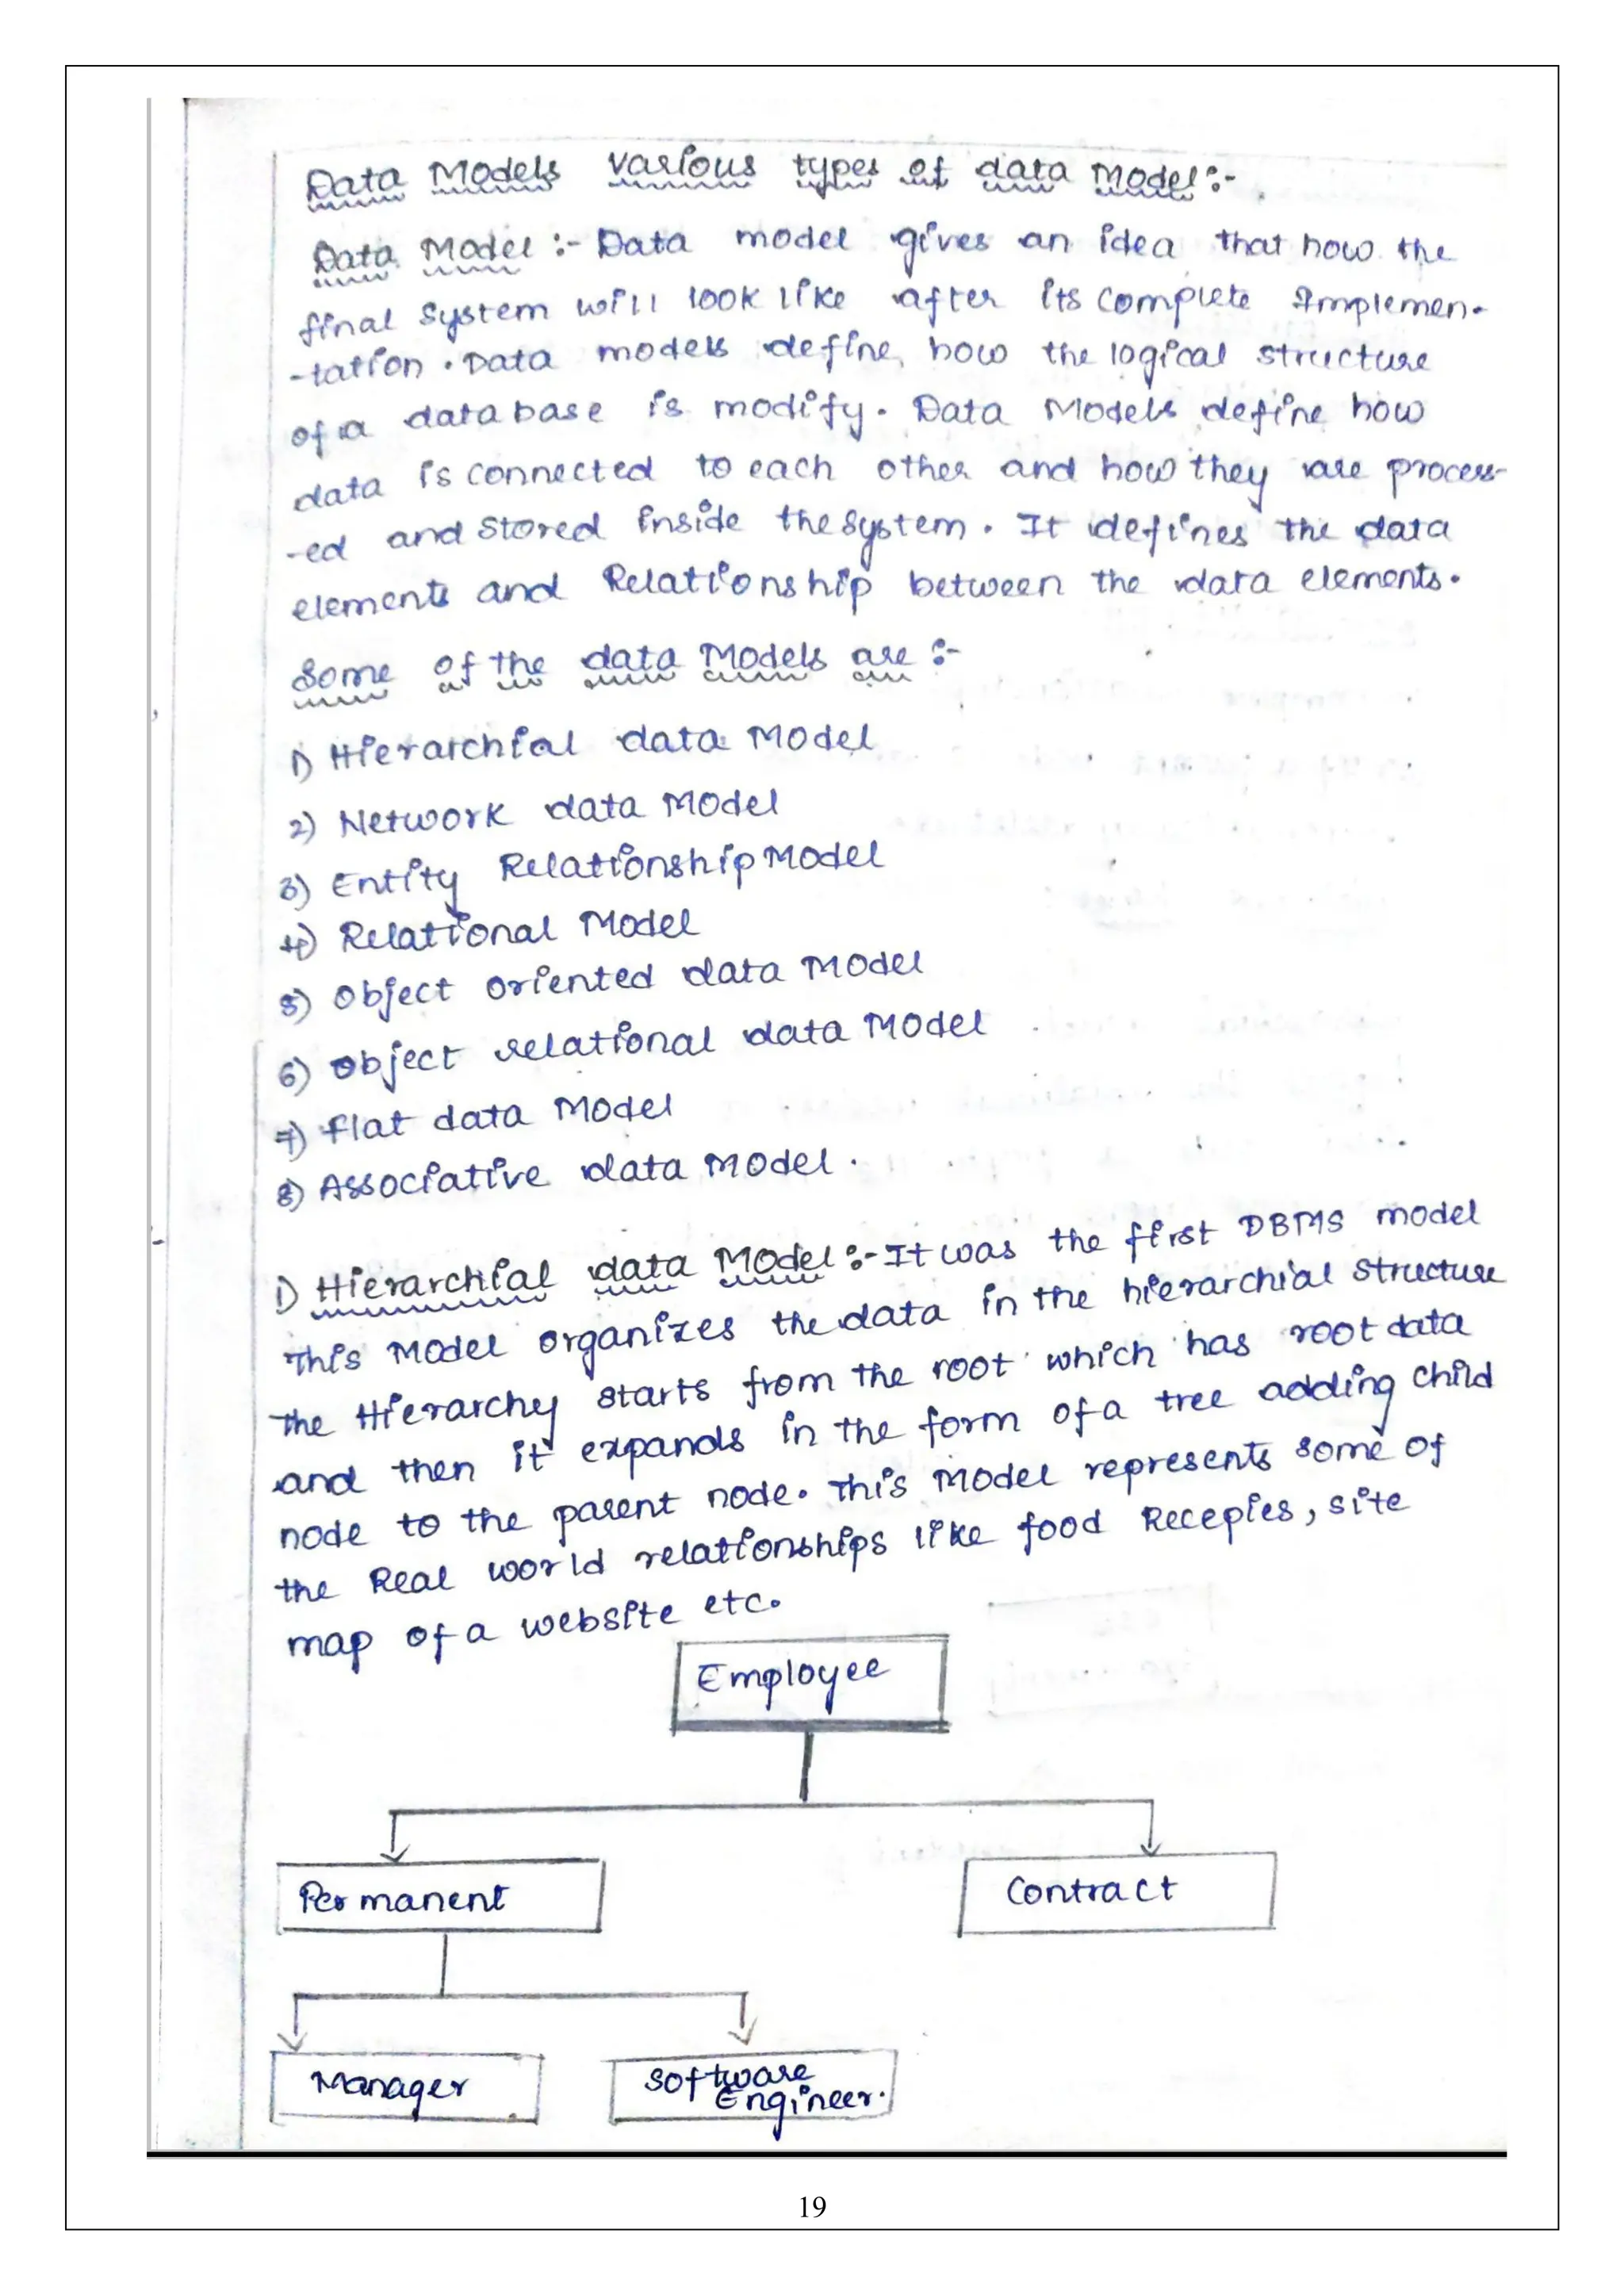 Data Models various types of data Model:-
Data Model :- Data model gives an idea that how the
final system will look like after its complete Implemen-
-tation. Data models define, how the logical structure
of a database is modify. Data Models define how
data is connected to each other and how they are process-
-ed and stored inside the system. It defines the data
elements and Relationship between the data elements.
Some of the data Models are :-
1) Hierarchial data Model
2) Network data Model
3) Entity Relationship Model
4) Relational Model
5) Object oriented data Model
6) Object relational data Model
7) flat data Model
8) Associative data Model.
1) Hierarchial data Model :- It was the first DBMS model
This Model organizes the data in the hierarchial structure
the Hierarchy starts from the root which has root data
and then it expands in the form of a tree adding child
node to the parent node. This Model represents some of
the Real world relationships like food Recepies, site
map of a website etc.
Employee
Permanent
Contract
Manager
Software
Engineer.
19